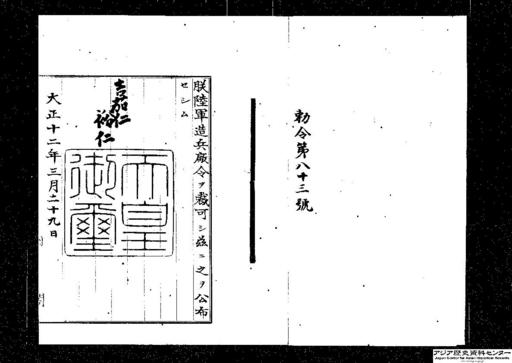 勅令第八十三號
朕陸軍造兵廠令ヲ裁可シ茲ニ之ヲ公布
セシム
嘉仁
裕仁
天皇
御璽
大正十二年三月二十九日
アジア歴史資料センター
Japan Center for Asian Historical Records